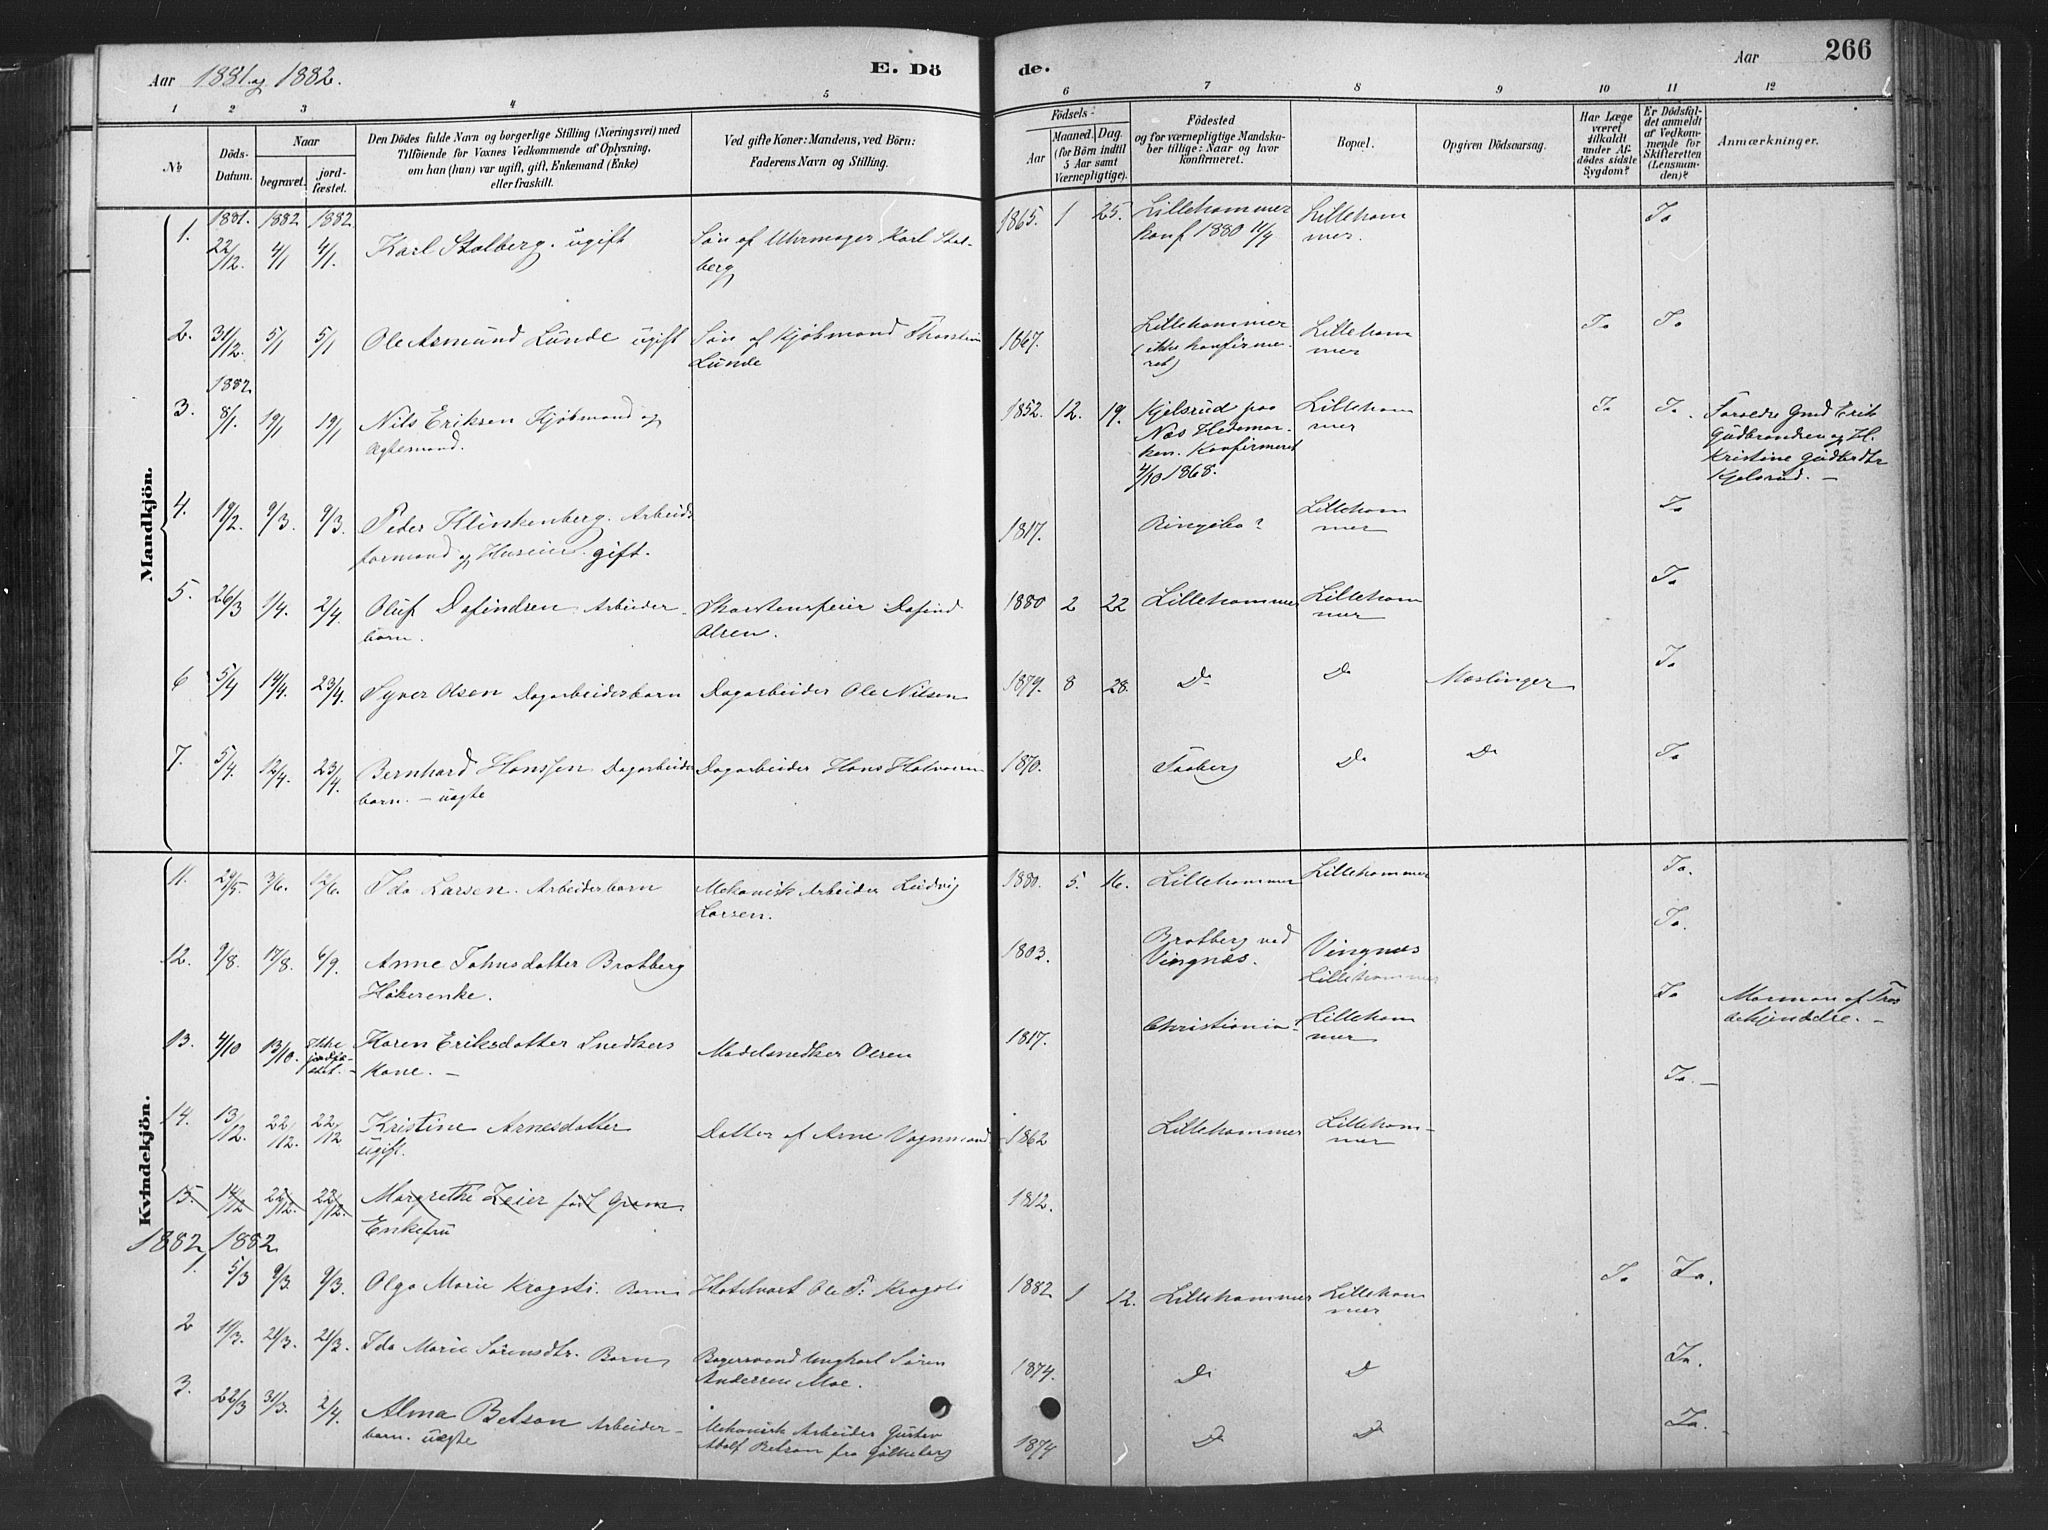 Aar 1881 og 1882.
E. Döde.
Aar
266
1 2 3 4 5 6 7 8 9 10 11 12
No
Döds-Datum.
Naar
begravet.
jord-fæstet.
Den Dödes fulde Navn og borgerlige Stilling (Næringsvei) med
Tilföiende for Voxnes Vedkommende af Oplysning,
om han (hun) var ugift, gift, Enkemand (Enke)
eller fraskilt.
Ved gifte Koner: Mandens, ved Börn:
Faderens Navn og Stilling.
Födsels-
Aar
Maaned. Dag.
(for Börn indtil
5 Aar samt
Værnepligtige).
Födested
og for værnepligtige Mandska-
ber tillige: Naar og hvor
konfirmeret.
Bopæl.
Opgiven Dödsaarsag.
Har Læge
været
tilkaldt
under Af-
dödes sidste
Sygdom?
Er Dödsfal-
det anmeldt
af Vedkom-
mende for
Skifteretten
(Lensman-
den)?
Anmærkninger.
Mandkjön.
1881. 1882 1882
1. 22/12. 4/1 4/1. Karl Stalberg. ugift Søn af Uhrmager Karl Stal-
berg 1865. 1 25. Lillehammer
konf 1880 11/4 Lilleham
mer. Ja
2. 31/12. 5/1 5/1 Ole Asmund Lunde ugift Søn af Kjøbmand Thorstein
Lunde 1867. Lillehammer
(ikke konfirme-
ret) Lilleham
mer Ja Ja
1882
3. 8/1. 19/1 19/1 Nils Eriksen Kjøbmand og
Ægtemand. 1852. 12. 19. Kjelsrud paa
Næs Hedemar-
ken. Konfirmeret
4/10 1868. Lilleham
mer Ja Ja. Forældre Gmd Erik
Gudbrandsen og H.
Kristine Gudbrdtr
Kjelsrud. —
4. 19/2. 9/3. 9/3. Peder Klinkenberg. Arbeids
formand og Huseier. gift. 1817. Ringebo? Lilleham
mer Ja
5. 26/3 1/4. 2/4. Oluf Dafindsen Arbeider-
barn. Skorstensfeier Dafind
Olsen. 1880 2 22 Lillehammer Lilleham
mer Ja
6 5/4 14/4. 23/4. Syver Olsen Dagarbeiderbarn Dagarbeider Ole Nilsen 1879. 8 28. Do Do Mæslinger Ja
7. 5/4. 12/4. 23/4. Bernhard Hanssen Dagarbeider
barn. — uægte Dagarbeider Hans Halvorsen 1870. Faaberg Do Do Ja
Kvindekjön.
11. 29/5. 3/6. 12/6. Ida Larsen. Arbeiderbarn Mekanisk Arbeider Ludvig
Larsen. 1880. 5. 16. Lillehammer Lillehammer Ja.
12. 9/8. 17/8. 6/9. Anne Johnsdatter Brotberg
Høkerenke. 1803. Brotberg ved
Vingnæs. Vingnæs
Lillehammer Ja.
13. 4/10 13/10. Ikke
jordfæ-
stet. — Karen Eriksdatter Snedkers
Kone. — Modelsnedker Olsen 1817. Christiania? Lilleham
mer Ja Mormon af Tros
bekjendelse. —
14. 13/12. 22/12. 22/12 Kristine Arnesdatter
ugift. Datter af Arne Vognmand 1862 Lillehammer Lilleham-
mer Ja. —
15. 14/12 22/12. 22/12. Margrethe Zeier født Gram
Enkefru 1812.
1882 1882
1. 5/3 9/3. 9/3. Olga Marie Kragsti. Barn Hotelvært Ole P. Kragsti 1882 1 12. Lillehammer Lilleham
mer Ja Ja.
2 11/3. 21/3. 21/3. Ida Marie Sørensdtr. Barn Bagersvend Ungkarl Søren
Andersen Moe. 1874. Do D Ja.
3. 22/3 31/3. 2/4. Alma Betson Arbeider-
barn. uægte Mekanisk Arbeider Gustav
Adolf Betson fra 1874 D D Ja.